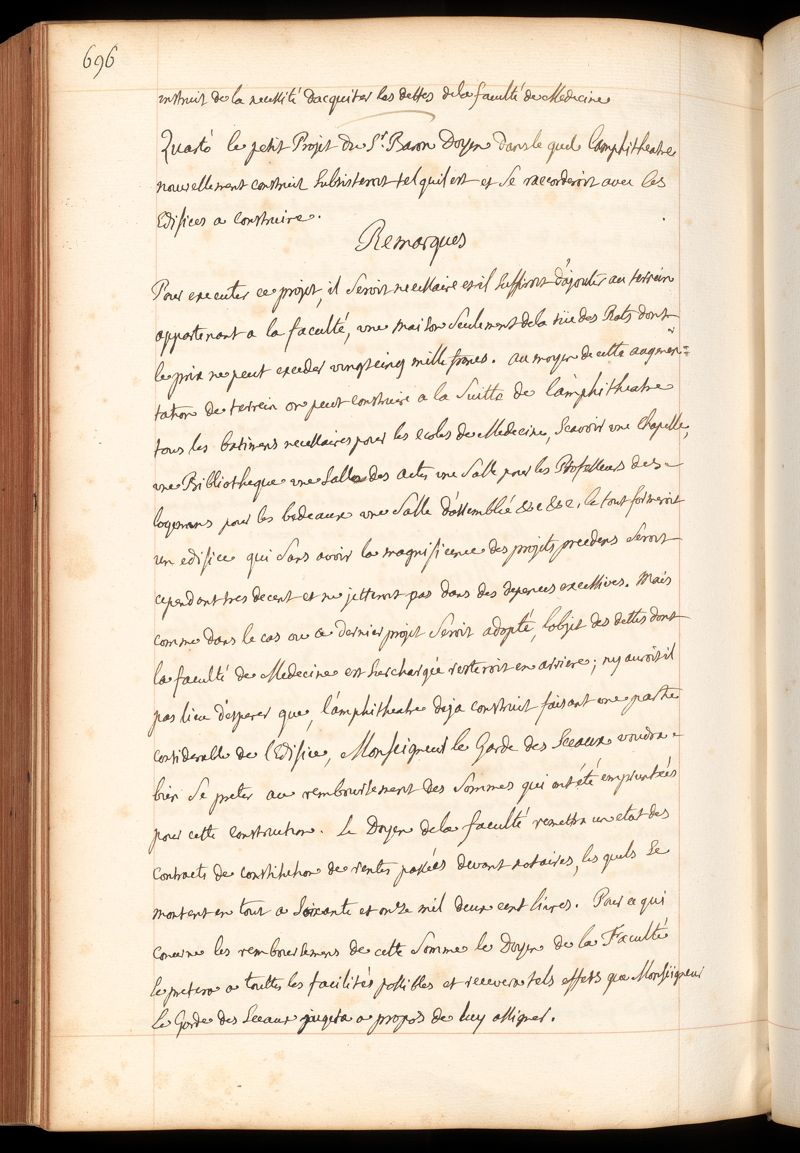 696
instruit de la necessité dacquiter les dettes de la faculté de Medecine
Quartò le petit Projet du Sr. Baron Doyen dans le quel lamphitheatre
nouvellement construit subsisteroit tel quil est et se raccorderoit avec les
Edifices a construire.
Remarques
Pour executer ce projet, il seroit necessaire et il suffiroit d'ajouter au terrein
appartenant a la faculté, une maison seulement de la rüe des Rats dont
le prix ne peut exceder vingt cinq mille francs. au moyen de cette augmen=
tation de terrein on peut construire a la suitte de l'amphitheatre
tous les batimens necessaires pour les ecoles de Medecine, scavoir une Chapelle,
une Bibliotheque une salle des actes une salle pour les Professeurs des
logemens pour les bedeaux une salle d'assemblée &c &c &c, le tout formeroit
un edifice qui sans avoir la magnificence des projets precedens seroit
cependant tres decent et ne jetteroit pas dans des depences excessives. Mais
comme dans le cas ou ce dernier projet seroit adopté, lobjet des dettes dont
la faculté de Medecine est surchargée resteroit en arriere; ny auroit il
pas lieu desperer que, l'amphitheatre deja construit faisant une partie
considerable de l'Edifice, Monseigneur le Garde des Sceaux voudra
bien se preter au remboursement des sommes qui ont été empruntées
pour cette construction. Le Doyen de la faculté remettra un etat des
contracts de constitution de rentes passées devant notaires, les quels se
montent en tout a soixante et onze mil deux cent livres. Pour ce qui
concerne les remboursemens de cette somme le Doyen de la Faculté
se pretera a touttes les facilités possibles et recevera tels effets que Monseigneur
le Garde des Sceaux jugera a propos de luy assigner.